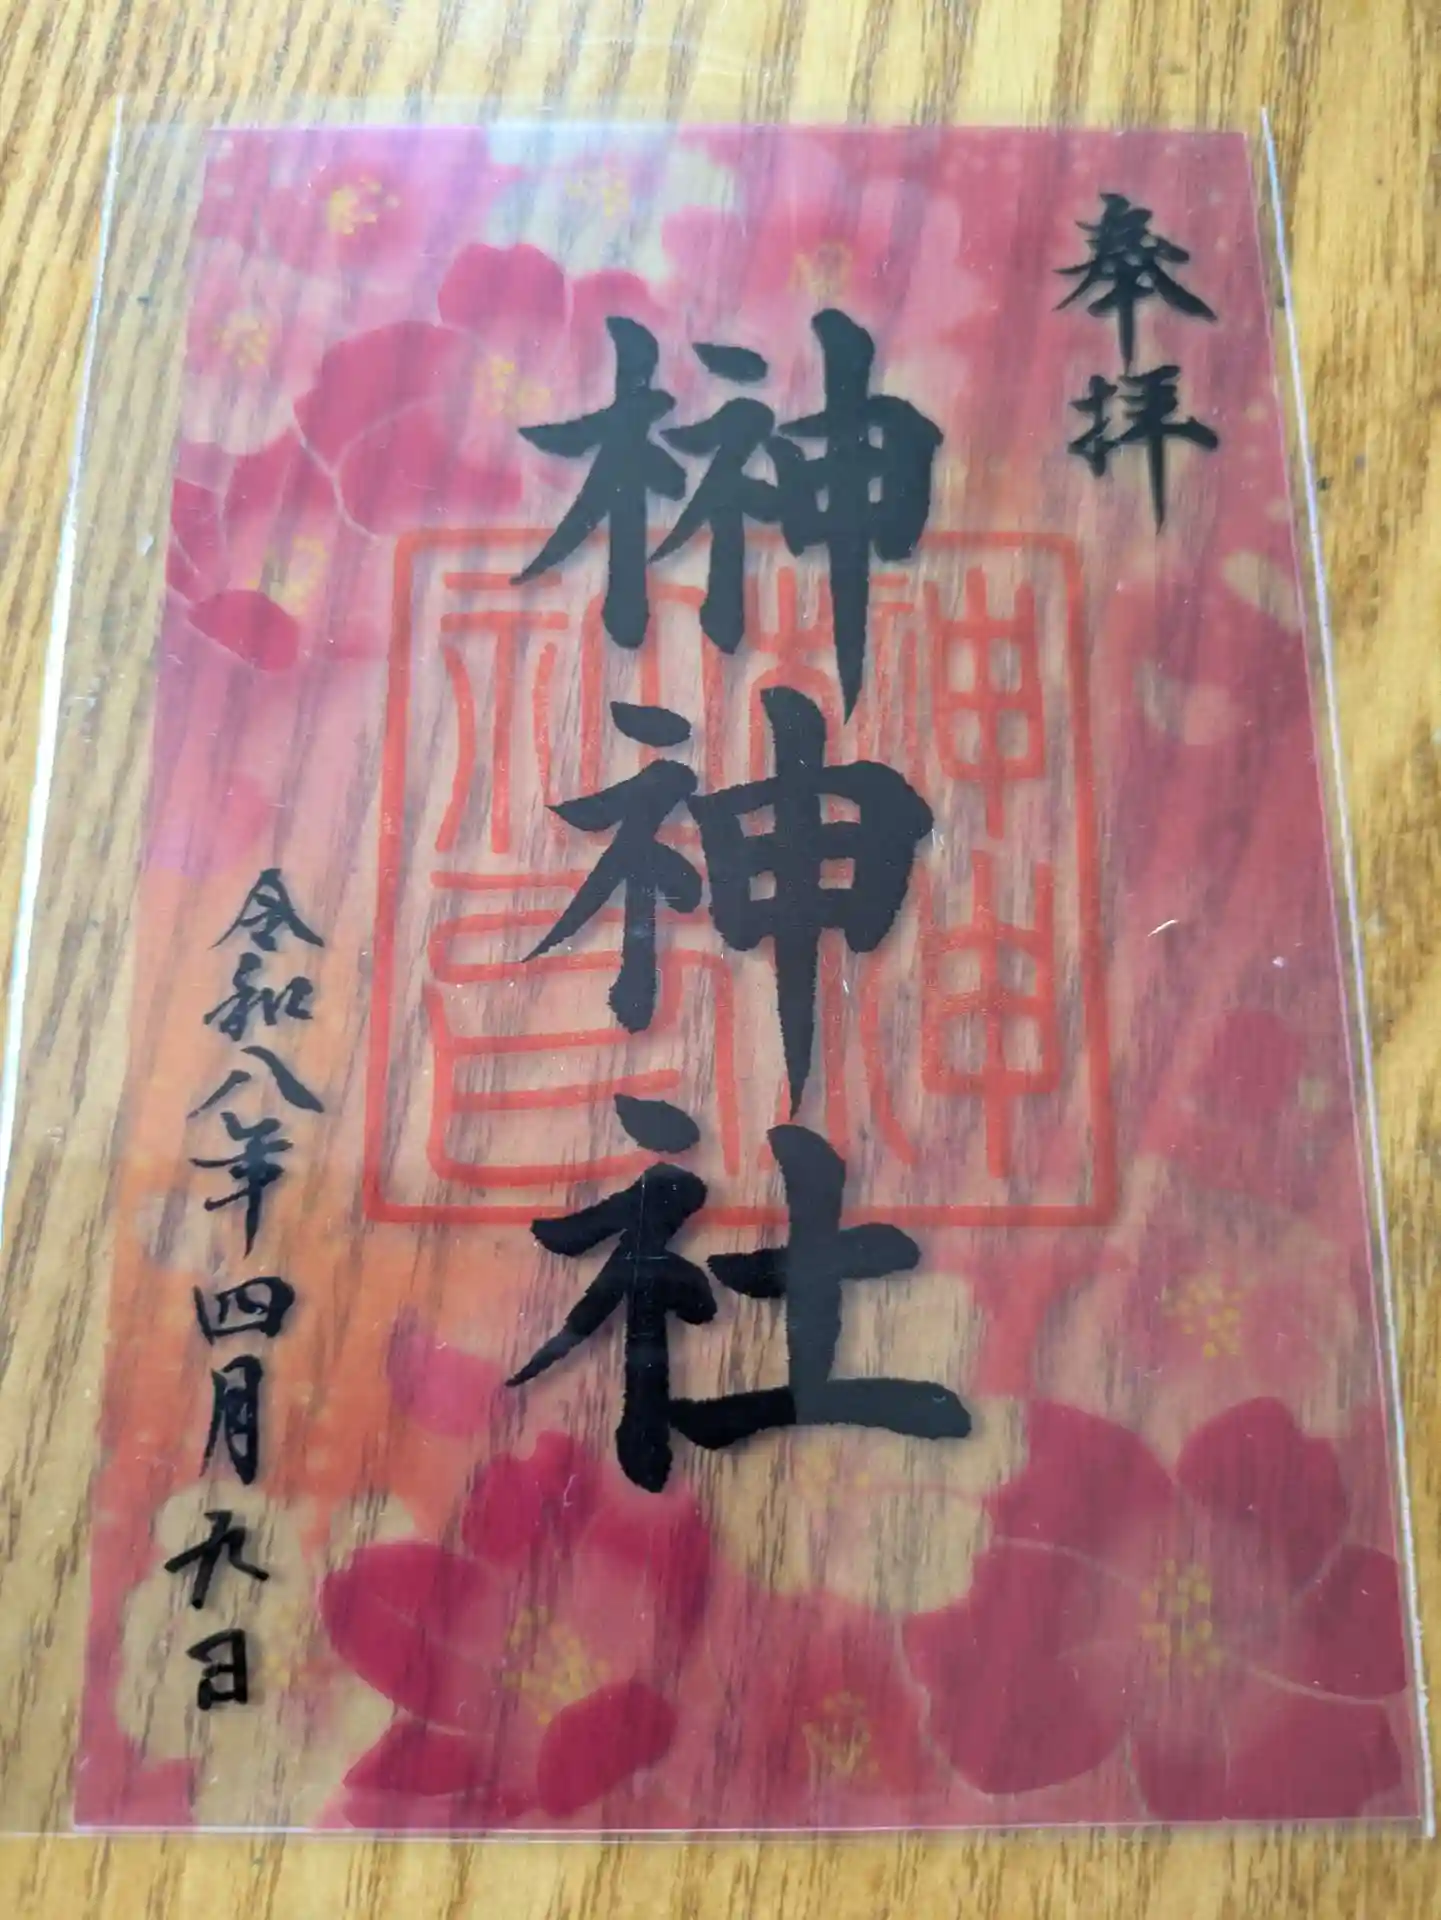 奉拝
榊神社
令和八年四月九日